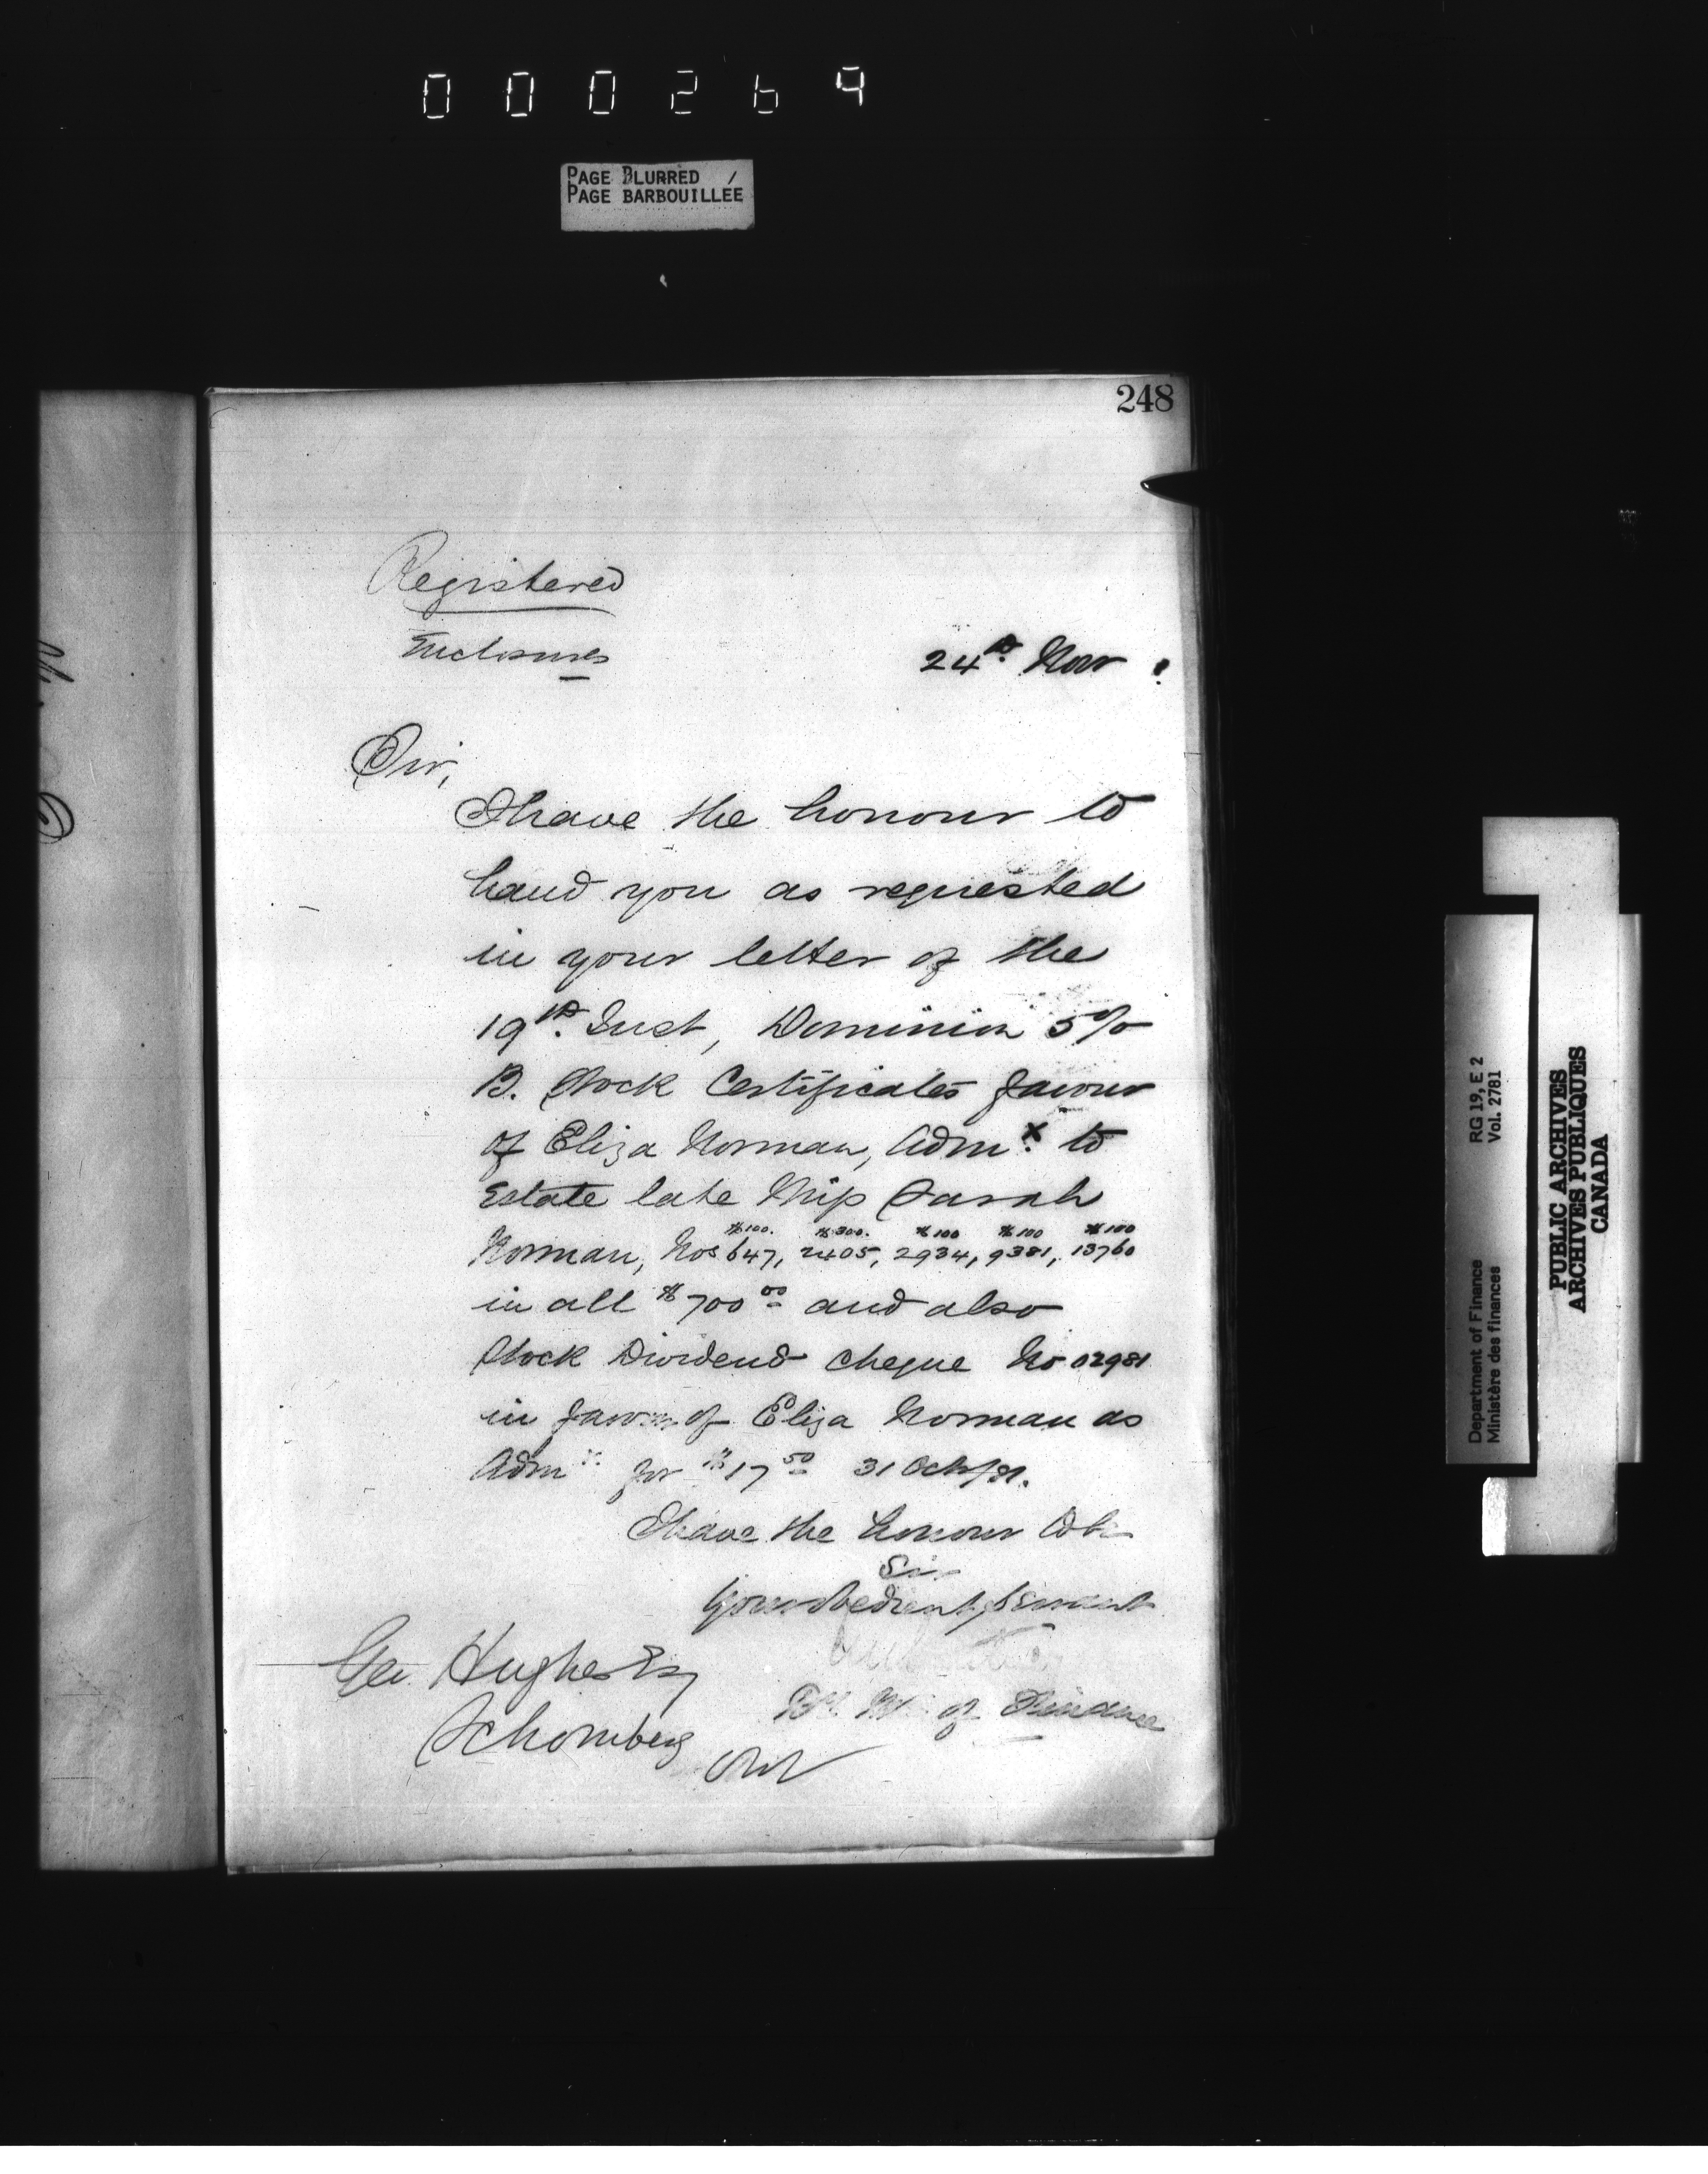 000269
PAGE BLURRED /
PAGE BARBOUILLÉE
248
Registered
Enclosures
24th Nov
Sir,
I have the honour to
hand you as requested
in your letter of the
19th Inst, Dominion 5%
B. Stock Certificates favour
of Eliza Norman, Admx to
Estate late Miss Sarah
$100. $300. $100 $100 $100
Norman, Nos 647, 2405, 2934, 9381, 13760
in all $700 00 and also
Stock Dividend cheque No 02981
in favour of Eliza Norman as
Admx for $17 50 31 Oct/81.
I have the honour to be
Sir
Your obedient Servant
of Finance
Geo. Hughes Esq
Schomberg
Ont
Department of Finance RG 19, E 2
Ministère des finances Vol. 2781
PUBLIC ARCHIVES
ARCHIVES PUBLIQUES
CANADA